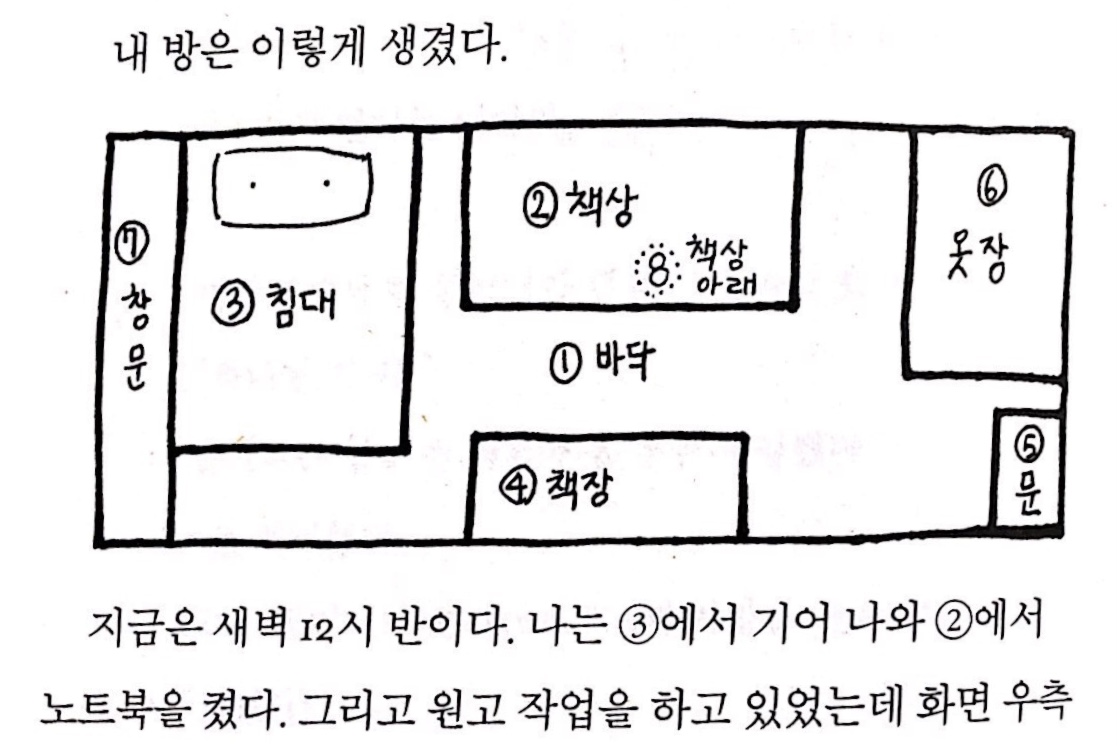 내 방은 이렇게 생겼다.
⑦ 창문
③ 침대
② 책상
8 책상 아래
① 바닥
④ 책장
⑥ 옷장
⑤ 문
지금은 새벽 12시 반이다. 나는 ③에서 기어 나와 ②에서
노트북을 켰다. 그리고 원고 작업을 하고 있었는데 화면 우측